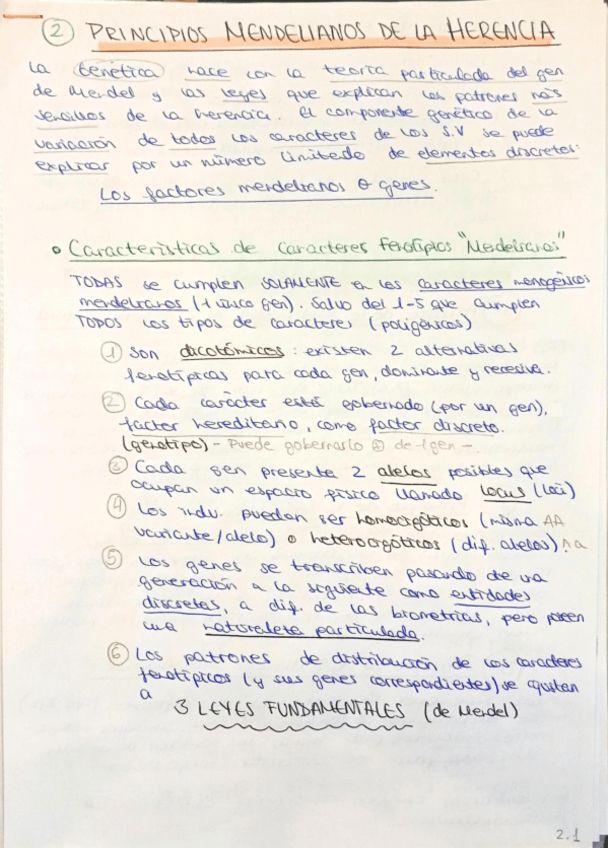 2 PRINCIPIOS MENDELIANOS DE LA HERENCIA
La Genética nace con la teoría particulada del gen
de Mendel y las leyes que explican los patrones más
sencillos de la herencia. El componente genético de la
variación de todos los caracteres de los S.V se puede
explicar por un número limitado de elementos discretos:
Los factores mendelianos o genes.
• Características de caracteres fenotípicos "Mendelianos"
TODAS se cumplen SOLAMENTE en los caracteres monogénicos
mendelianos (1 único gen). Salvo del 1-5 que cumplen
TODOS los tipos de caracteres (poligénicos)
1 Son dicotómicos: existen 2 alternativas
fenotípicas para cada gen, dominante y recesiva.
2 Cada carácter está gobernado (por un gen),
factor hereditario, como factor discreto.
(genotipo) - Puede gobernarlo ⊕ de 1 gen -.
3 Cada gen presenta 2 alelos posibles que
ocupan un espacio físico llamado locus (loci)
4 Los indv. pueden ser homocigóticos (misma AA
variante/alelo) o heterocigóticos (dif. alelos) Aa
5 Los genes se transcriben pasando de una
generación a la siguiente como entidades
discretas, a dif. de las biométricas, pero poseen
una naturaleza particulada.
6 Los patrones de distribución de los caracteres
fenotípicos (y sus genes correspondientes) se ajustan
a
3 LEYES FUNDAMENTALES (de Mendel)
2.1